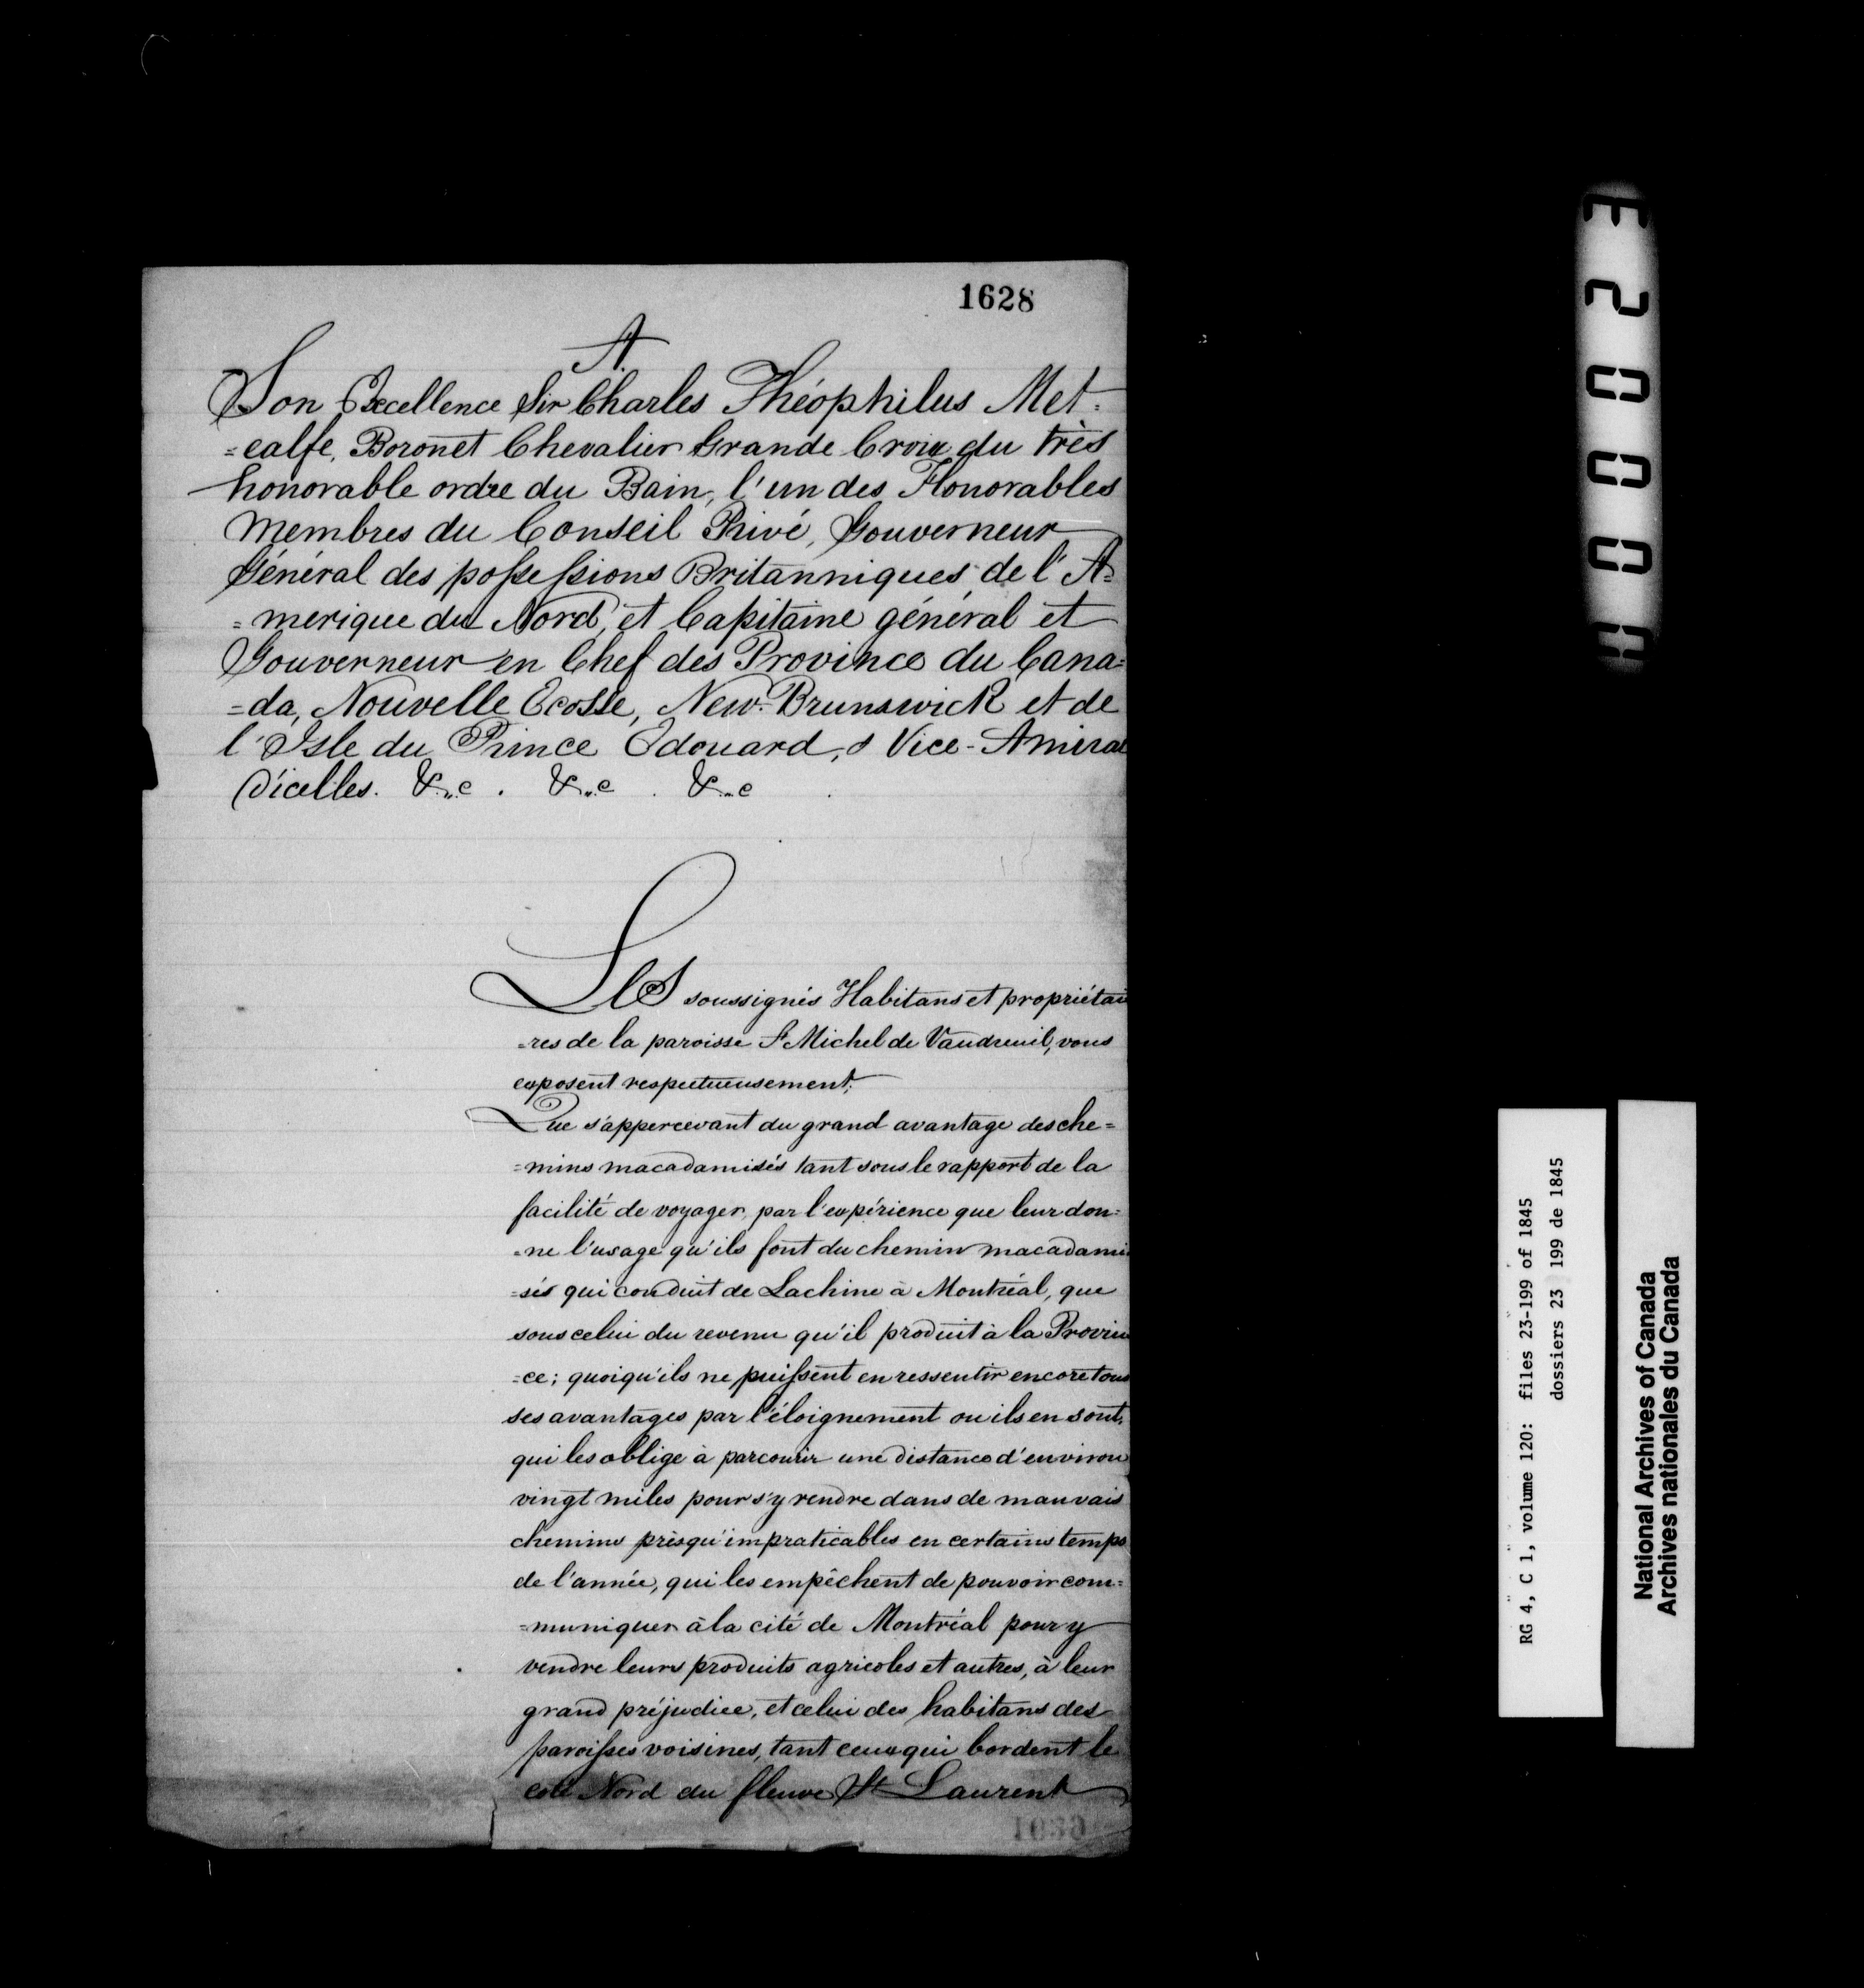 1628
A
Son Excellence Sir Charles Théophilus Met=
=calfe, Boronet Chevalier Grande Croix du très
honorable ordre du Bain, l'un des Honorables
membres du Conseil Privé, Gouverneur
Général des possessions Britanniques de l'A=
=merique du Nord, et Capitaine général et
Gouverneur en Chef des Province du Cana=
=da, Nouvelle Ecosse, New-Brunswick et de
l'Isle du Prince Edouard, & Vice-Amiral
D'icelles. &c. &c. &c
Les soussignés Habitans et propriétai
=res de la paroisse St Michel de Vaudreuil, vous
exposent respectueusement;
Que s'appercevant du grand avantage des che=
=mins macadamisés tant sous le rapport de la
facilité de voyager, par l'expérience que leur don=
=ne l'usage qu'ils font du chemin macadami
=sés qui conduit de Lachine à Montréal, que
sous celui du revenu qu'il produit à la Provin
=ce; quoiqu'ils ne puissent en ressentir encore tous
ses avantages par l'éloignement ou ils en sont,
qui les oblige à parcourir une distance d'environ
vingt miles pour s'y rendre dans de mauvais
chemins prèsqu'impraticables en certains temps
de l'année, qui les empêchent de pouvoir com=
=muniquer à la cité de Montréal pour y
vendre leurs produits agricoles et autres, à leur
grand préjudice, et celui des habitans des
paroisses voisines, tant ceux qui bordent le
coté Nord du fleuve St Laurent
1639
00023
RG 4, C 1, volume 120: files 23-199 of 1845
dossiers 23 199 de 1845
National Archives of Canada
Archives nationales du Canada